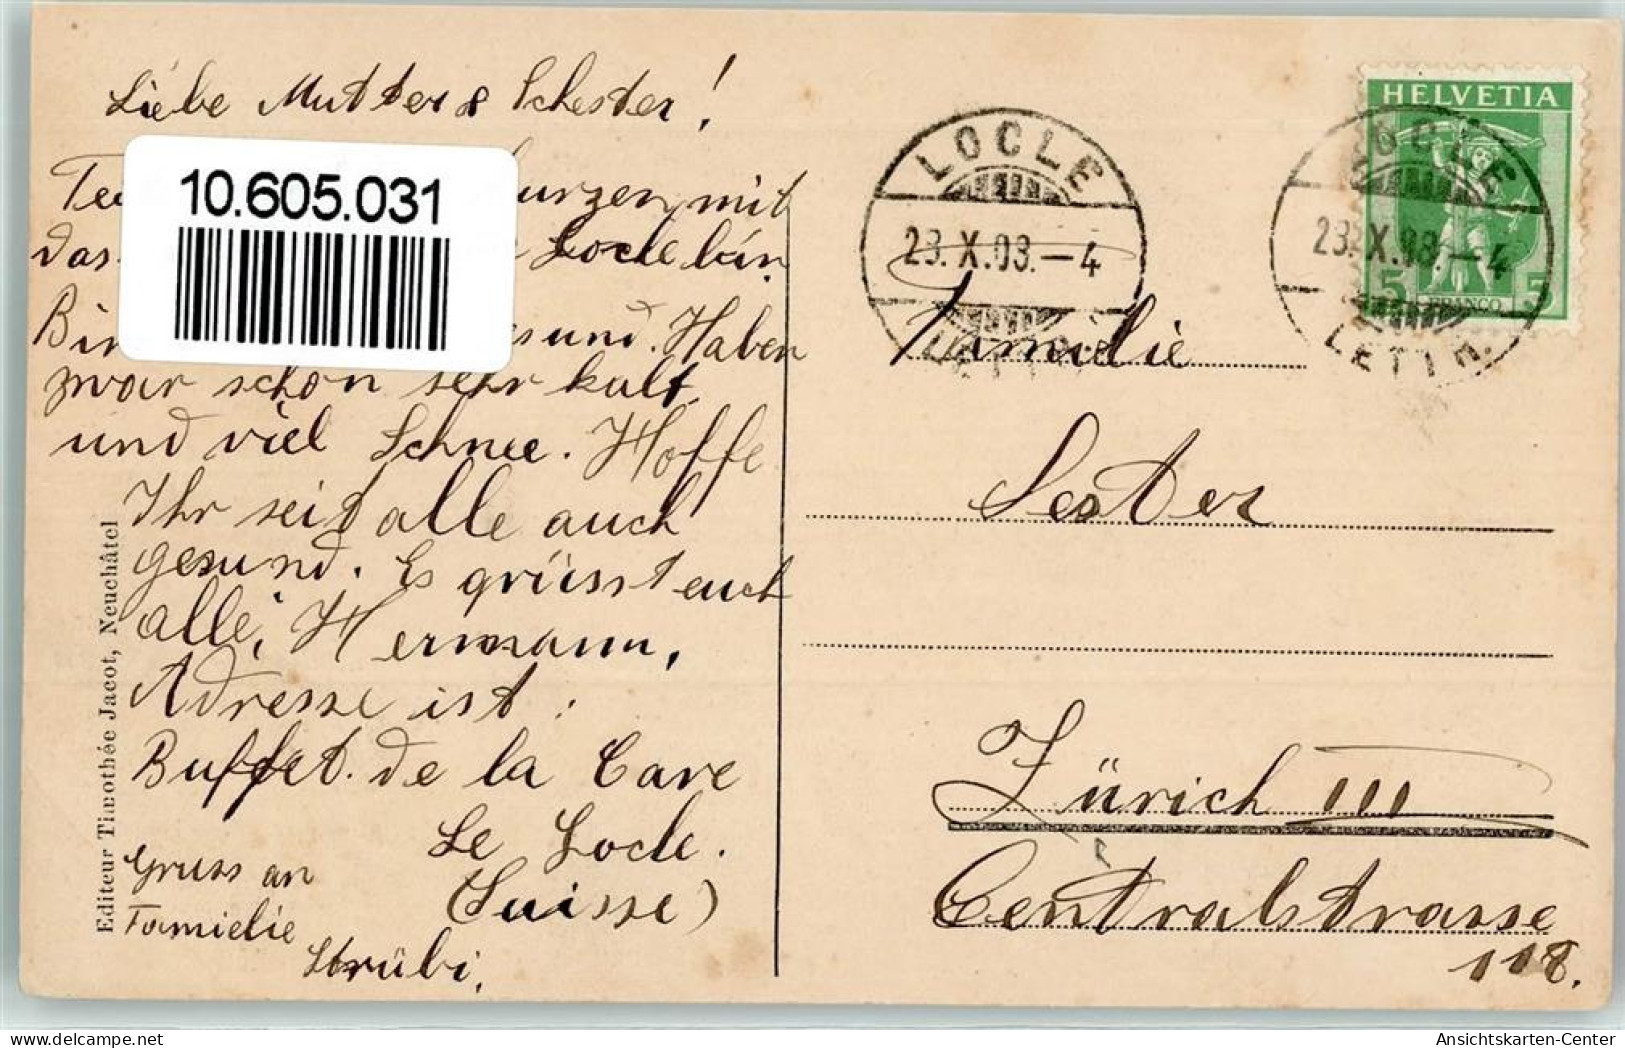 Liebe Mutter & Schester!
10.605.031
urzen mit
das Locle bin
sund. Haben
zwar schon sehr kalt
und viel Schnee. Hoffe
Ihr seid alle auch
gesund. Es grüsst euch
alle, Hermann,
Adresse ist:
Buffet. de la Care
Le Locle.
(Suisse)
Gruss an
Familie
Strübi.
Editeur Timothée Jacot, Neuchâtel
LOCLE
23.X.08.-4
HELVETIA
5 FRANCO 5
LOCLE
23.X.08.-4
Familie
Sester
Zürich III
Centralstrasse
118.
AnsichtsKarten-Center